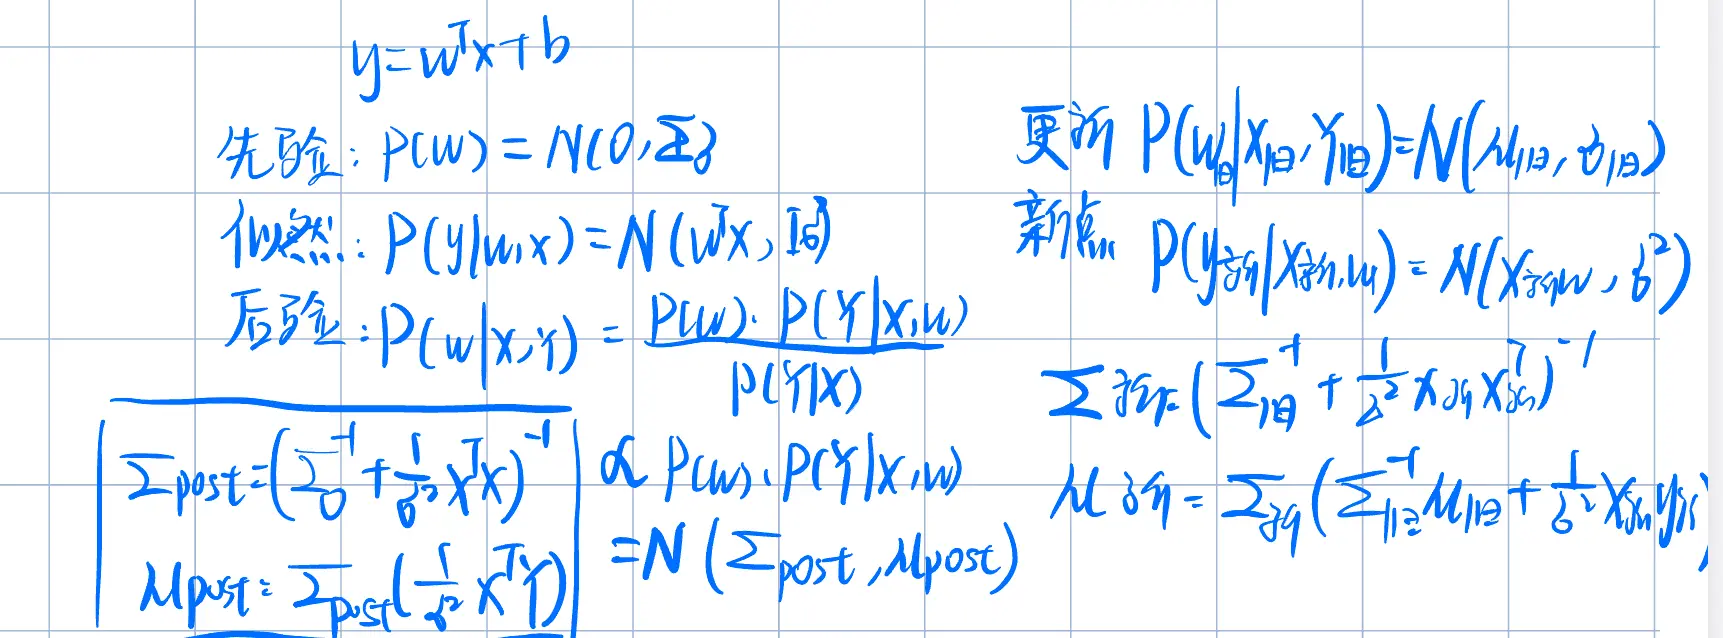 y=wᵀx+b
先验: P(w) = N(0, Σ₀)
似然: P(y|w,x) = N(wᵀx, Iσ²)
后验: P(w|X,Y) = P(w)·P(Y|X,w) / P(Y|X)
∝ P(w)·P(Y|X,w)
=N(Σpost, μpost)
Σpost=(Σ₀⁻¹+1/σ² XᵀX)⁻¹
μpost=Σpost(1/σ² XᵀY)
更新 P(w旧|X旧,Y旧)=N(μ旧,σ旧)
新点 P(y新|x新,w) = N(x新w, σ²)
Σ新=(Σ旧⁻¹ + 1/σ² x新x新ᵀ)⁻¹
μ新 = Σ新(Σ旧⁻¹μ旧+1/σ² x新y新)